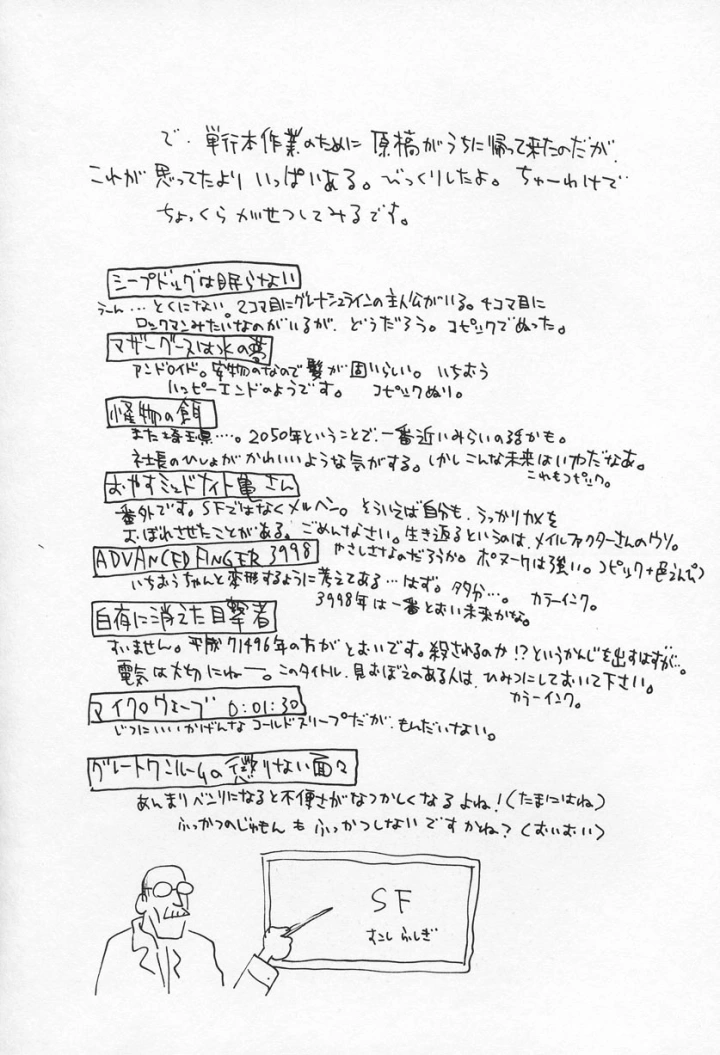 で、単行本作業のために原稿がうちに帰って来たのだが、
これが思ってたよりいっぱいある。びっくりしたよ。ちゅーわけで
ちょっくらかせつしてみるです。
シープドッグは眠らない
うーん…とくにない。2コマ目にグレートシュラインの主人公がいる。4コマ目に
ロックマンみたいなのがいるが、どうだろう。コピックでぬった。
マザーグースは氷の夢
アンドロイド。安物のなので髪が固いらしい。いちおう
ハッピーエンドのようです。 コピックぬり。
怪物の餌
また埼玉県…。2050年ということで、一番近いみらいの話かも。
社長のひしょがかわいいような気がする。しかしこんな未来はいやだなあ。
これもコピック。
おやすミッドナイト亀さん
番外です。SFではなくメルヘン。そういえば自分も、うっかりカメを
おぼれさせたことがある。ごめんなさい。生き返るというのは、メイルファクターさんのウソ。
やさしさなのだろうか。ポヌーケは強い。コピック+色えんぴつ
ADVANCED FINGER 3998
いちおうちゃんと変形するように考えてある…はず。多分…。 カラーインク。
3998年は一番とおい未来かな。
白夜に消えた目撃者
すいません。平成71496年の方がとおいです。殺されるのか!?というかんじを出すはずが…。
電気は大切にねー。このタイトル、見おぼえのある人は、ひみつにしておいて下さい。
カラーインク。
マイクロウェーブ 0:01:30
じつにいいかげんなコールドスリープだが、もんだいない。
グレートワンルームの懲りない面々
あんまりベンリになると不便さがなつかしくなるよね!(たまにはね)
ふっかつのじゅもんもふっかつしないですかね?(おいおい)
SF
すこしふしぎ